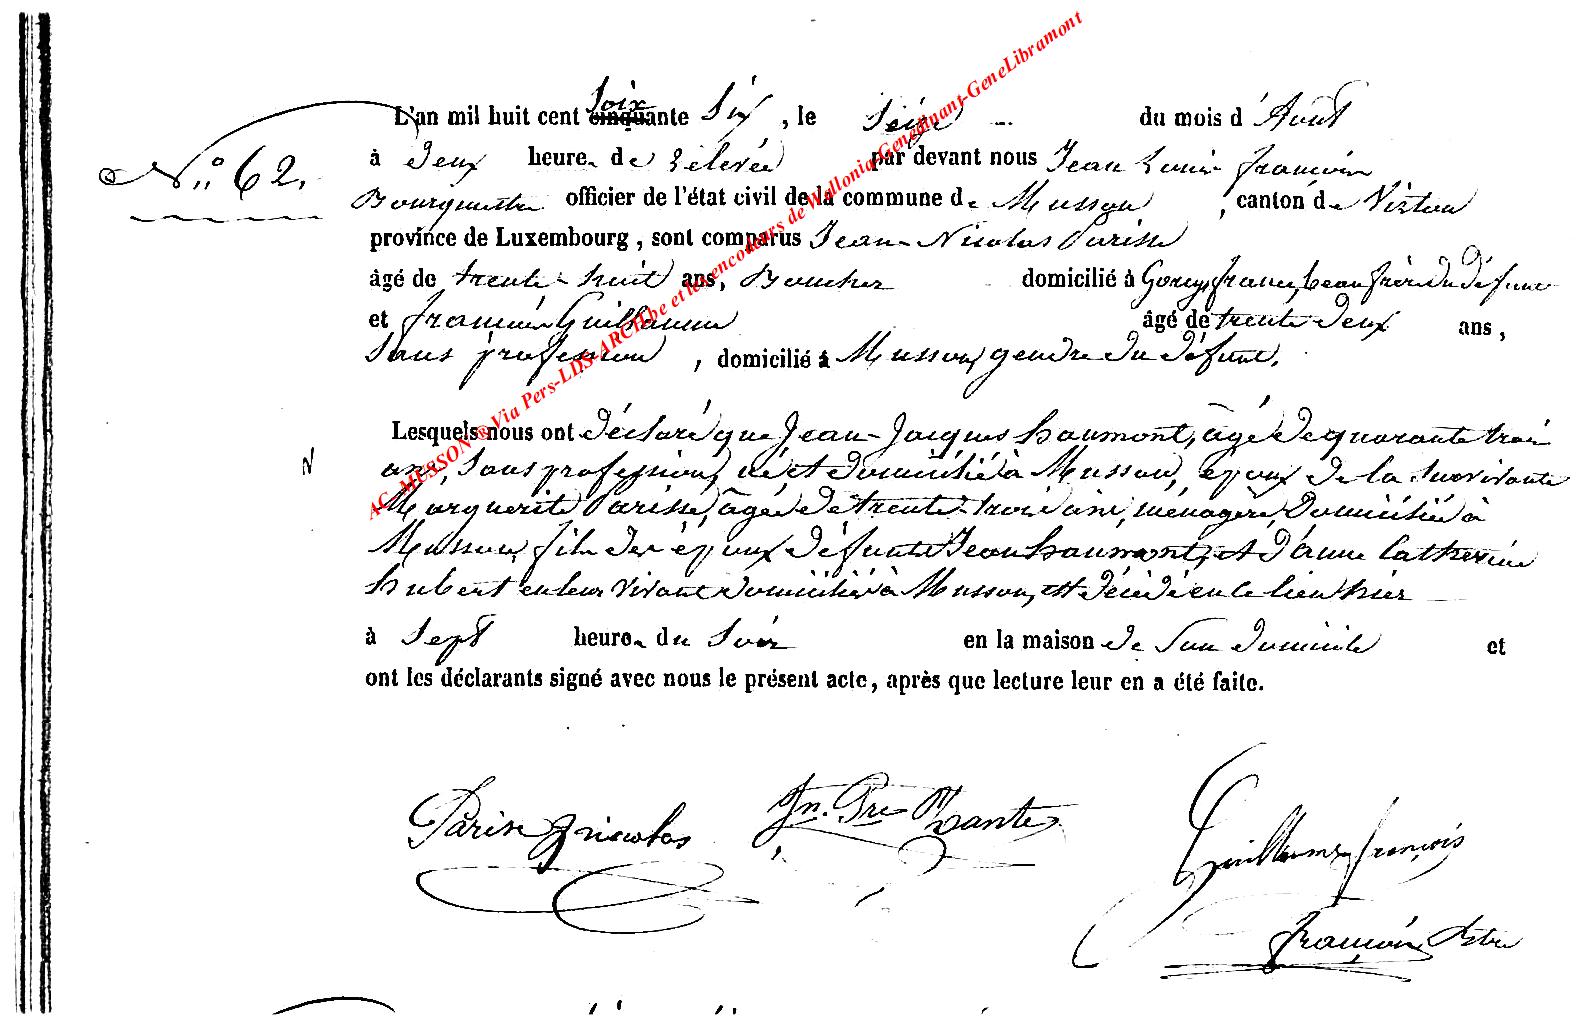 L'an mil huit cent soixante Six, le Seize du mois d'Août
N.° 62.
à deux heures de relevée par devant nous Jean Louis françois
Bourgmestre officier de l'état civil de la commune de Musson, canton de Virton
province de Luxembourg, sont comparus Jean-Nicolas Parisse
âgé de trente-huit ans, Boucher domicilié à Gorcy, france, beau frère du défunt
et françois Guillaume âgé de trente deux ans,
Sans profession, domicilié à Musson, gendre du défunt.
Lesquels nous ont déclaré que Jean-Jacques haumont, âgé de quarante trois
ans, Sans profession, né et domicilié à Musson, époux de la survivante
Marguerite Parisse, âgée de trente-trois ans, ménagère, domiciliée à
Musson, fils des époux défunts Jean haumont, et d'anne Catherine
hubert en leur vivant domiciliés à Musson, est décédé en ce lieu hier
à Sept heures du Soir en la maison de Son domicile et
ont les déclarants signé avec nous le présent acte, après que lecture leur en a été faite.
Parisse nicolas Jn. Pre
Guillaume françois
françois
AC-MUSSON ® Via Pers-LDS-ARCH.be et les encodeurs de Wallonia-Genedinant-GeneLibramont